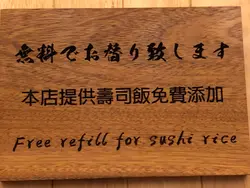 無料でお替り致します
本店提供壽司飯免費添加
Free refill for sushi rice